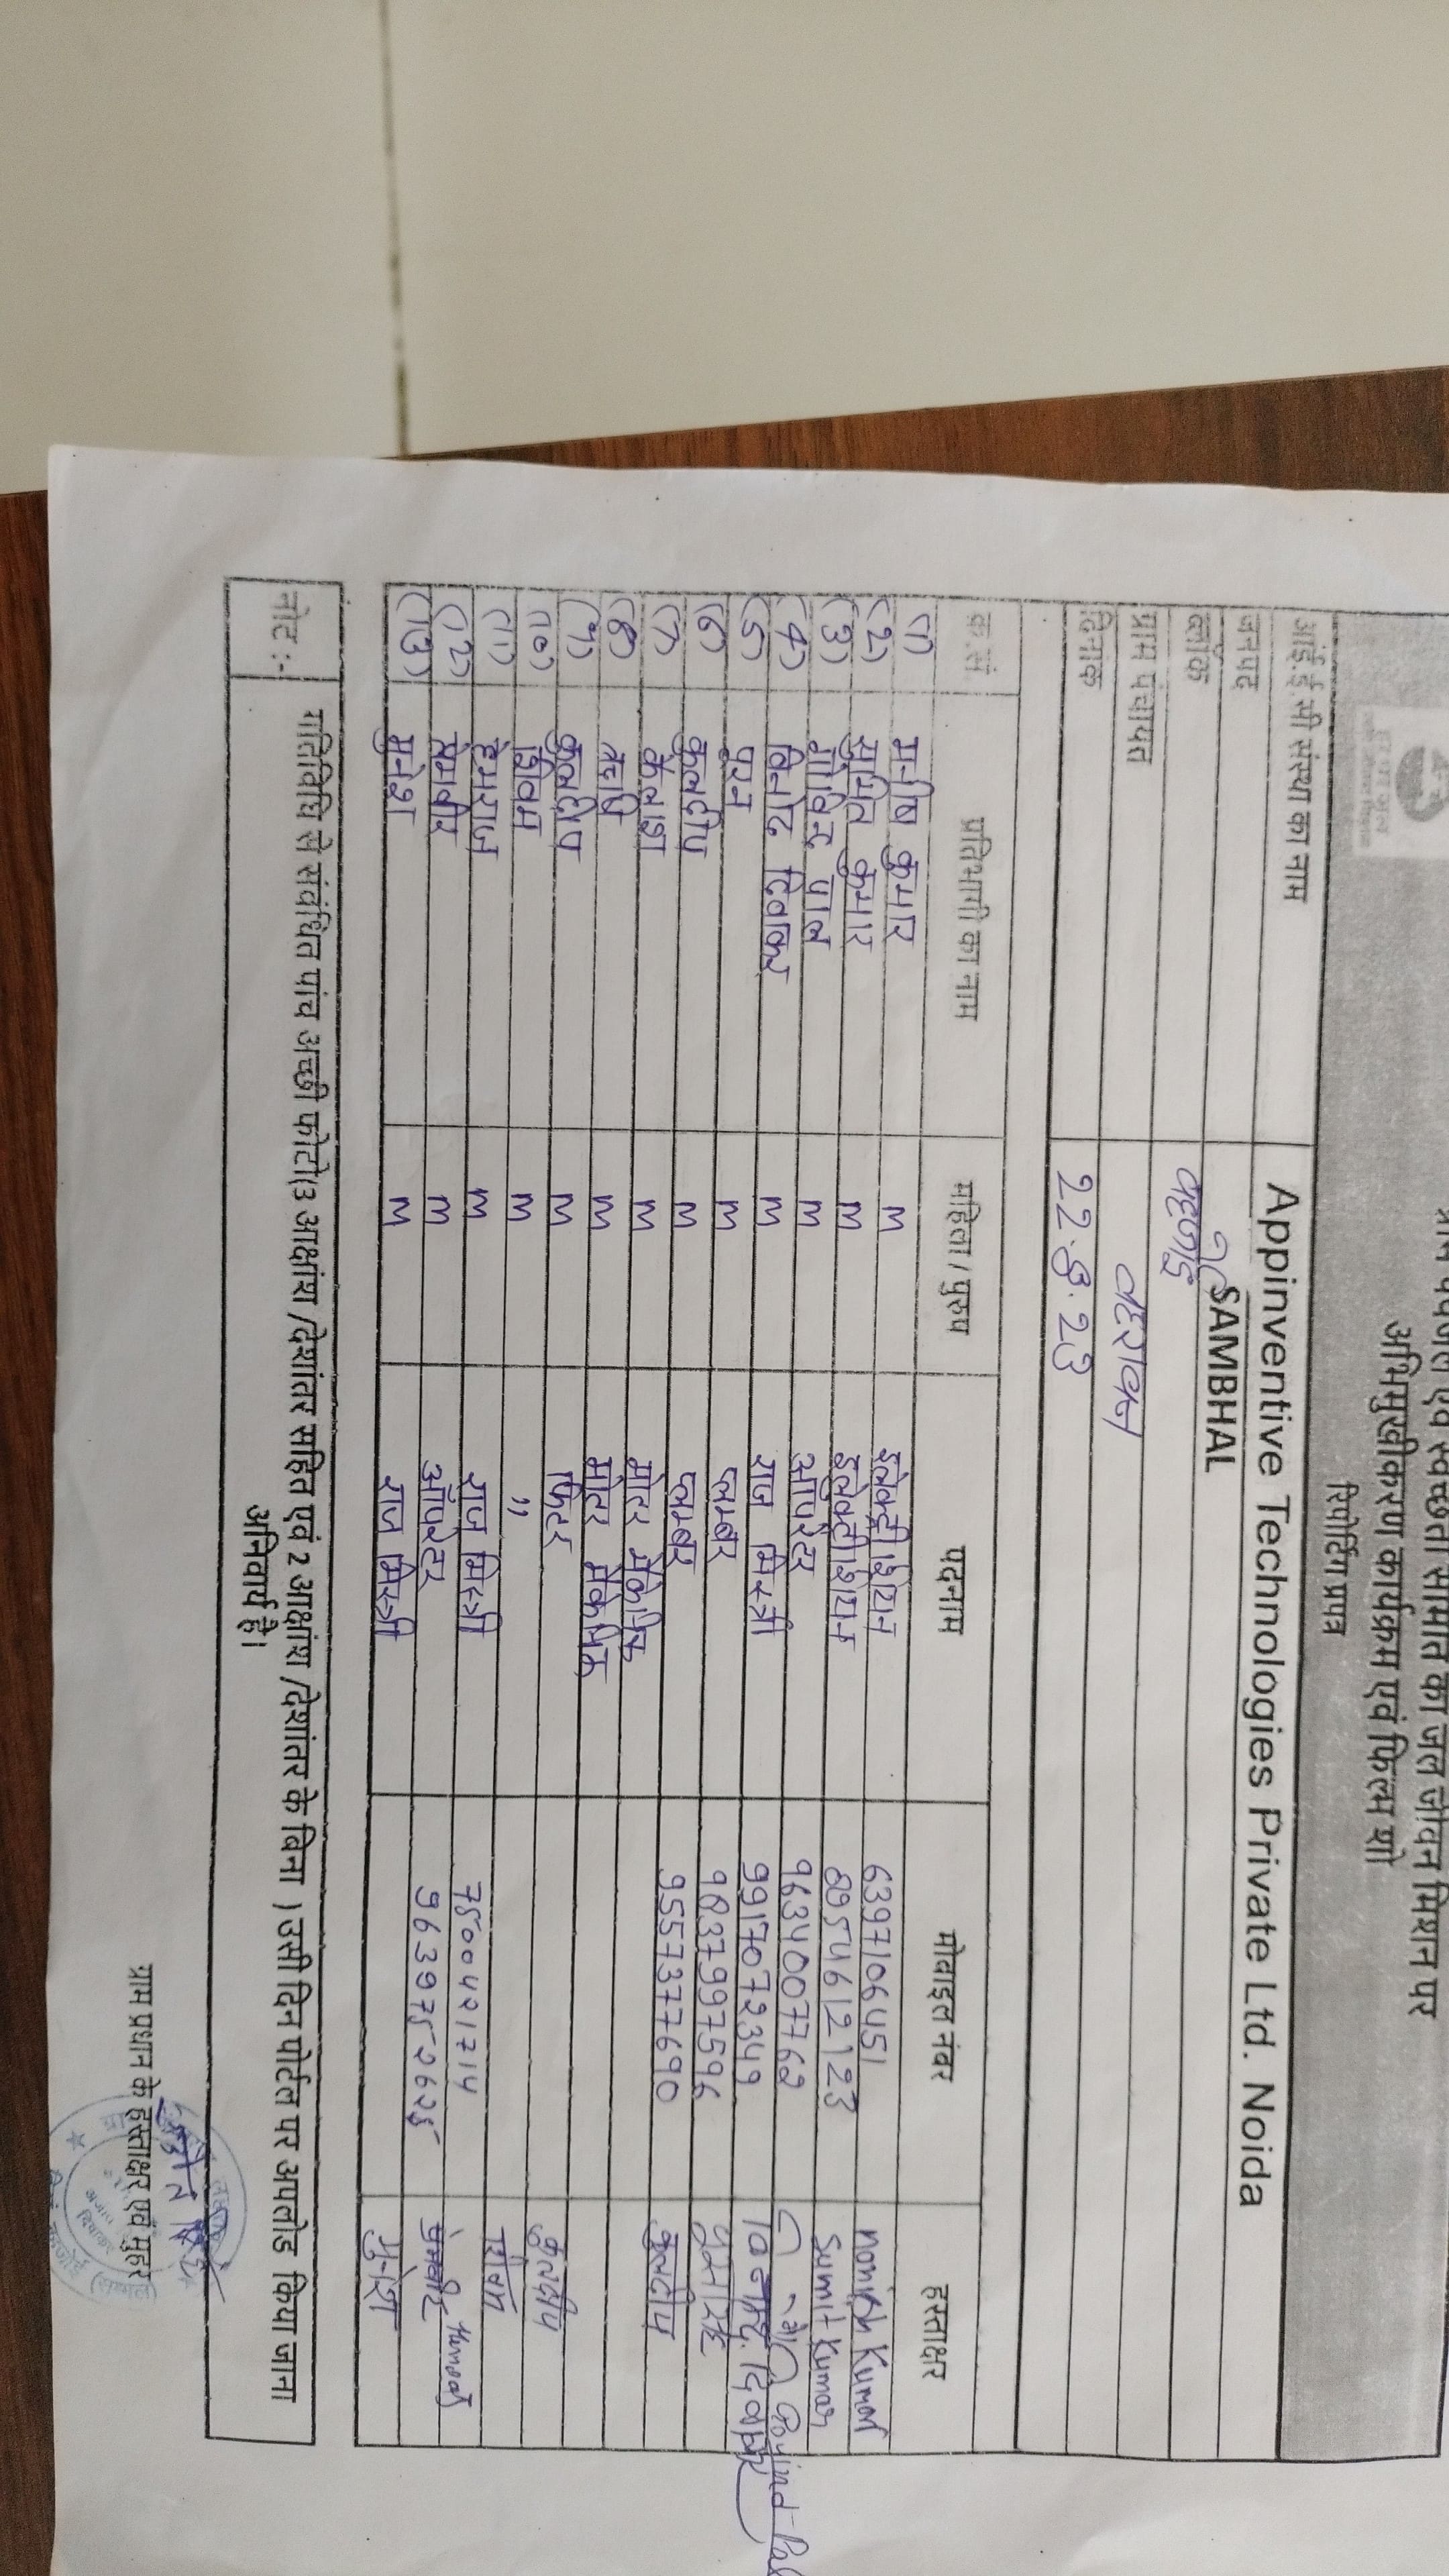 एवं स्वच्छता समिति का जल जीवन मिशन पर
अभिमुखीकरण कार्यक्रम एवं फिल्म शो
रिपोर्टिंग प्रपत्र
आई.ई.सी संस्था का नाम Appinventive Technologies Private Ltd. Noida
जनपद SAMBHAL
ब्लॉक
ग्राम पंचायत
दिनांक 22.8.23
क.सं. प्रतिभागी का नाम महिला / पुरुष पदनाम मोबाइल नंबर हस्ताक्षर
(1) मनीष कुमार M इलेक्ट्रीशियन 6397106451 manish Kumar
(2) सुमित कुमार M इलेक्ट्रीशियन 8954612123 Sumit Kumar
(3) गोविन्द पाल M ऑपरेटर 9634007762 Govind Pal
(4) विनोद दिवाकर M राज मिस्त्री 9917072349 विनोद दिवाकर
(5) पूरन M प्लम्बर 9837997596
(6) कुलदीप M प्लम्बर 9557377690 कुलदीप
(7) कैलाश M मोटर मैकेनिक
(8) M मोटर मैकेनिक
(9) कुलदीप M फिटर कुलदीप
(10) शिवम M " शिवम
(11) हेमराज M राज मिस्त्री 7500421714 Hemraj
(12) प्रेमवीर M ऑपरेटर 9639752625 प्रेमवीर
(13) मुनेश M राज मिस्त्री मुनेश
नोट :- गतिविधि से संबंधित पांच अच्छी फोटो(3 आक्षांश /देशांतर सहित एवं 2 आक्षांश /देशांतर के बिना ) उसी दिन पोर्टल पर अपलोड किया जाना
अनिवार्य है।
ग्राम प्रधान के हस्ताक्षर एवं मुहर